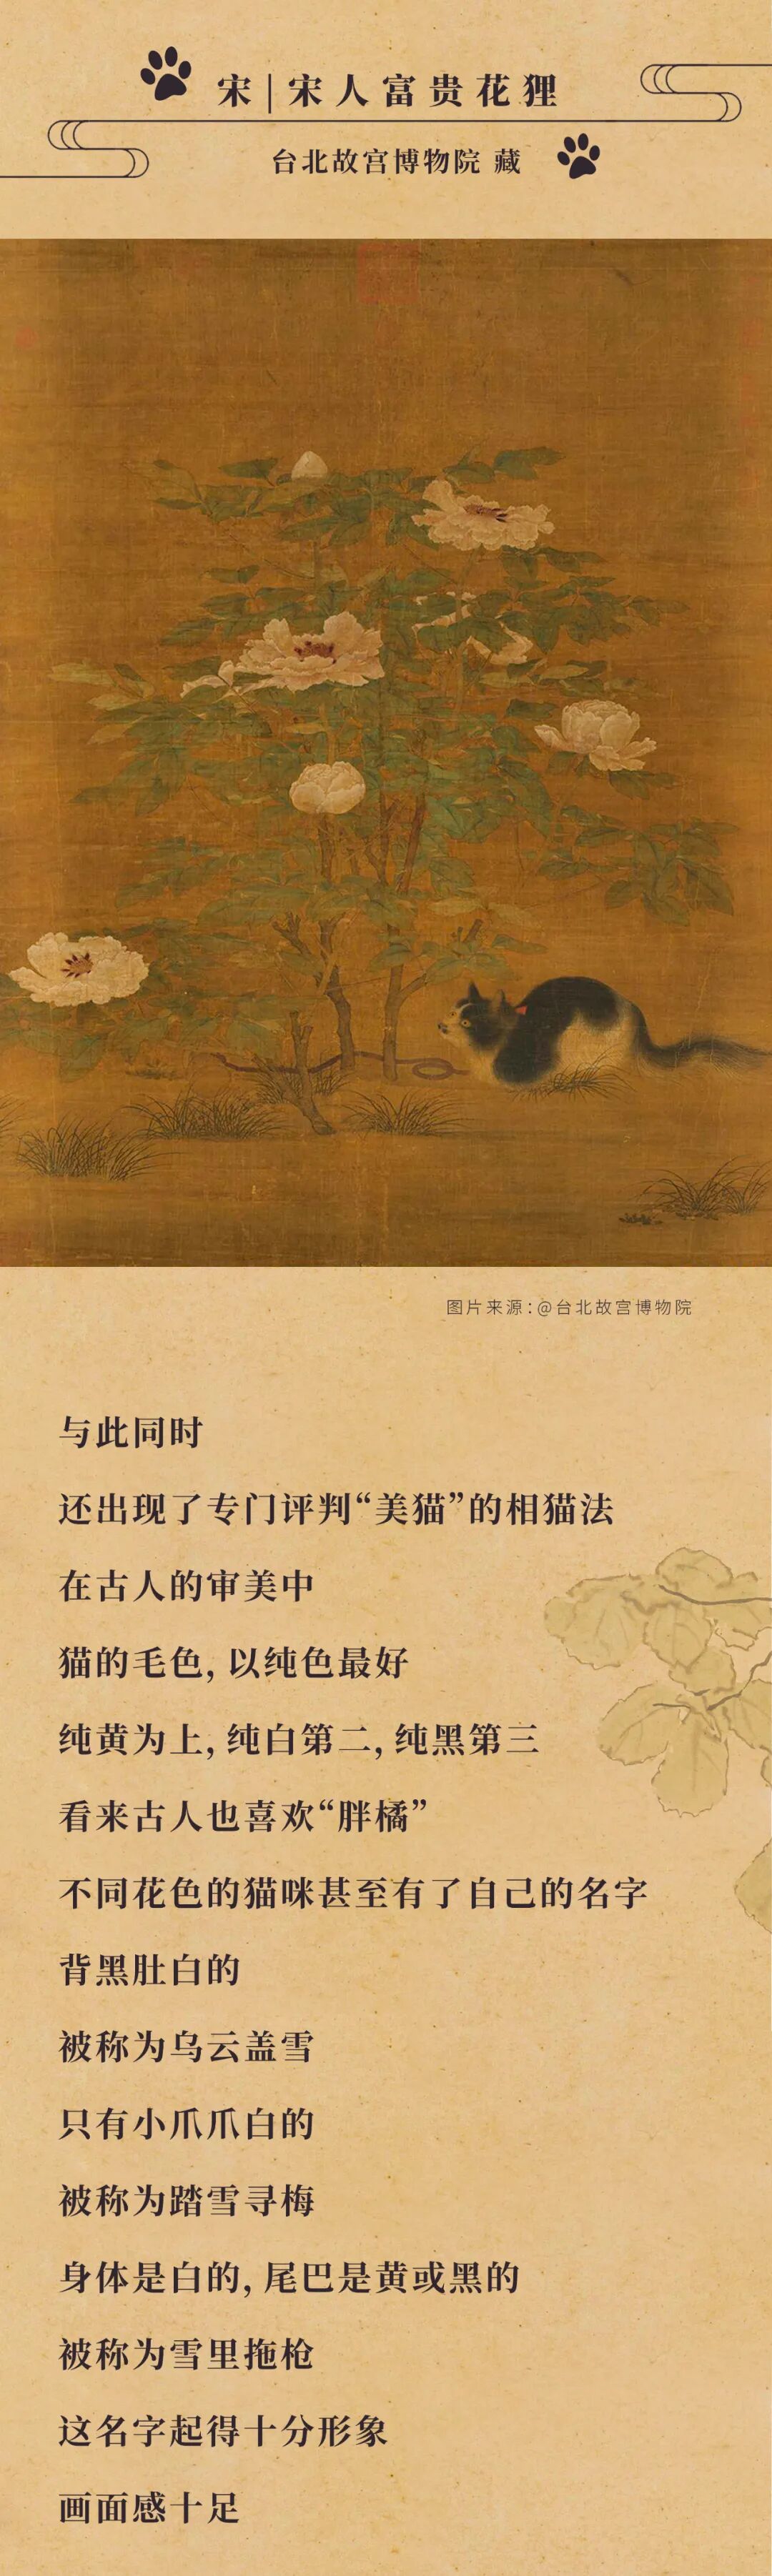 宋|宋人富贵花狸
台北故宫博物院 藏
图片来源:@台北故宫博物院
与此同时
还出现了专门评判“美猫”的相猫法
在古人的审美中
猫的毛色,以纯色最好
纯黄为上,纯白第二,纯黑第三
看来古人也喜欢“胖橘”
不同花色的猫咪甚至有了自己的名字
背黑肚白的
被称为乌云盖雪
只有小爪爪白的
被称为踏雪寻梅
身体是白的,尾巴是黄或黑的
被称为雪里拖枪
这名字起得十分形象
画面感十足